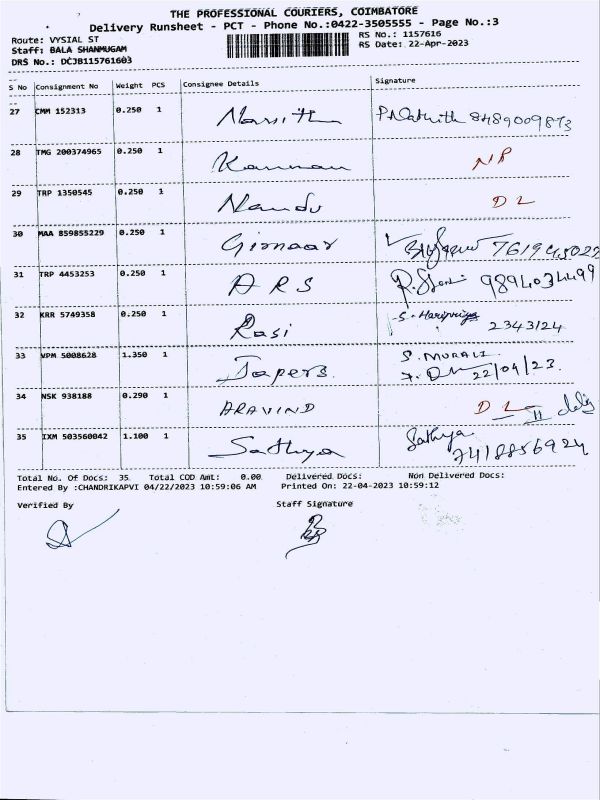 THE PROFESSIONAL COURIERS, COIMBATORE
Delivery Runsheet - PCT - Phone No.:0422-3505555 - Page No.:3
Route: VYSIAL ST RS No.: 1157616
Staff: BALA SHANMUGAM RS Date: 22-Apr-2023
DRS No.: DCJB115761603
S No Consignment No Weight PCS Consignee Details Signature
27 CMM 152313 0.250 1 8489009873
28 TMG 200374965 0.250 1 Kannan NP
29 TRP 1350545 0.250 1 Nandu DL
30 MAA 859855229 0.250 1 Girnaar
31 TRP 4453253 0.250 1 ARS 9894034499
32 KRR 5749358 0.250 1 Rasi S. Haripriya 2343124
33 VPM 5008628 1.350 1 Japers. S. MURALI
22/04/23.
34 NSK 938188 0.290 1 ARAVIND DL
35 IXM 503560042 1.100 1 Sathya Sathya
7418856924
Total No. Of Docs: 35 Total COD Amt: 0.00 Delivered Docs: Non Delivered Docs:
Entered By :CHANDRIKAPVI 04/22/2023 10:59:06 AM Printed On: 22-04-2023 10:59:12
Verified By Staff Signature